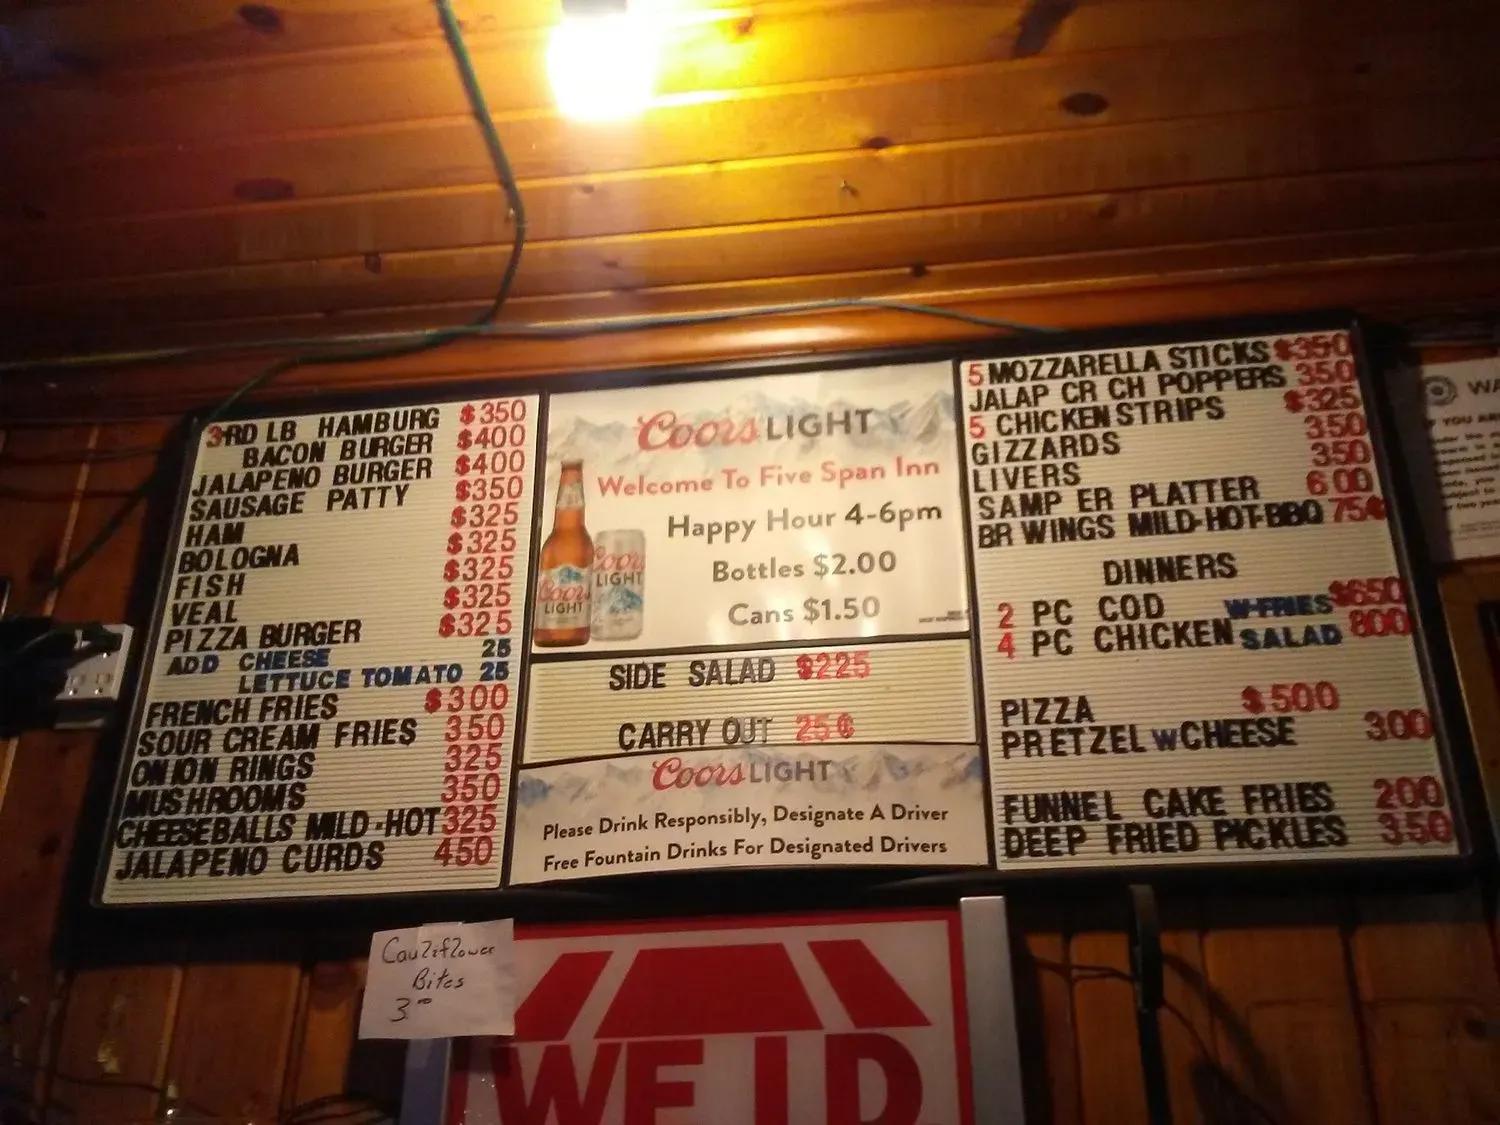 3RD LB HAMBURG $350
BACON BURGER $400
JALAPENO BURGER $400
SAUSAGE PATTY $350
HAM $325
BOLOGNA $325
FISH $325
VEAL $325
PIZZA BURGER $325
ADD CHEESE 25
LETTUCE TOMATO 25
FRENCH FRIES $300
SOUR CREAM FRIES 350
ONION RINGS 325
MUSHROOMS 350
CHEESEBALLS MILD-HOT 325
JALAPENO CURDS 450
Coors LIGHT
Welcome To Five Span Inn
Happy Hour 4-6pm
Bottles $2.00
Cans $1.50
Coors LIGHT
Coors LIGHT
SIDE SALAD $225
CARRY OUT 25¢
Coors LIGHT
Please Drink Responsibly, Designate A Driver
Free Fountain Drinks For Designated Drivers
5 MOZZARELLA STICKS $350
JALAP CR CH POPPERS 350
5 CHICKEN STRIPS $325
GIZZARDS 350
LIVERS 350
SAMP ER PLATTER 600
BR WINGS MILD-HOT-BBQ 75¢
DINNERS
2 PC COD W-FRIES $650
4 PC CHICKEN SALAD 800
PIZZA $500
PRETZEL W CHEESE 300
FUNNEL CAKE FRIES 200
DEEP FRIED PICKLES 350
Cauliflower
Bites
3.00
WE I.D.
WA
YOU AR